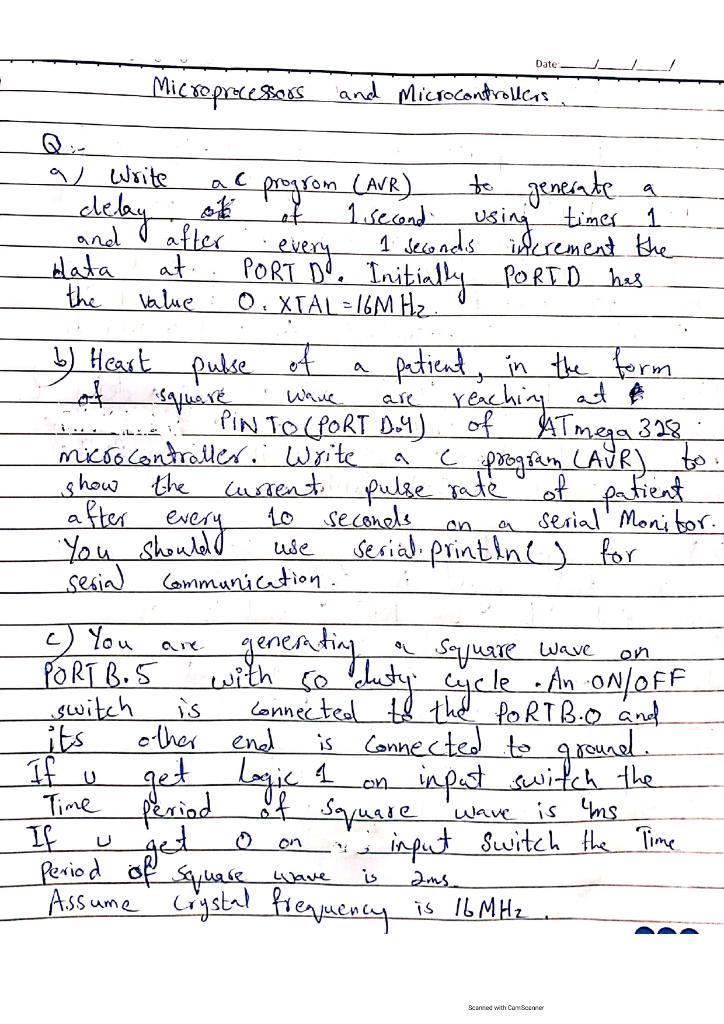 Date: / / /
Microprocessors and Microcontrollers.
Q:-
a) Write a C program (AVR) to generate a
delay of 1 second using timer 1
and after every 1 seconds increment the
data at PORT D. Initially PORT D has
the value 0. XTAL = 16MHz.
b) Heart pulse of a patient, in the form
of square wave are reaching at
PIN TO (PORT D.4) of ATmega 328
microcontroller. Write a C program (AVR) to
show the current pulse rate of patient
after every 10 seconds on a serial Monitor.
You should use serial.println() for
serial communication.
c) You are generating a square wave on
PORT B.5 with 50 duty cycle. An ON/OFF
switch is connected to the PORTB.0 and
its other end is connected to ground.
If u get Logic 1 on input switch the
Time period of square wave is 4ms
If u get 0 on input switch the Time
Period of square wave is 2ms
Assume Crystal frequency is 16MHz.
Scanned with CamScanner